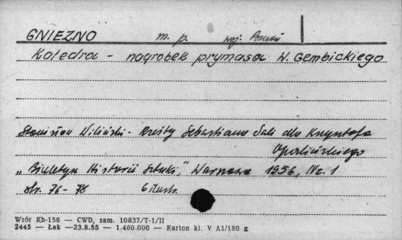 GNIEZNO m. p. woj. Poznań
Katedra - nagrobek prymasa W. Gembickiego
Stanisław Wiliński - Rzeźby Sebastiana Sali dla Krzysztofa
Opalińskiego
„Biuletyn Historii Sztuki," Warszawa 1956, Nr. 1
str. 76-78 6 ilustr.
Wzór Kb-156 — CWD, zam. 10837/T-1/II
2445 — Łak — 23.8.55 — 1.460.000 — Karton kl. V A1/180 g